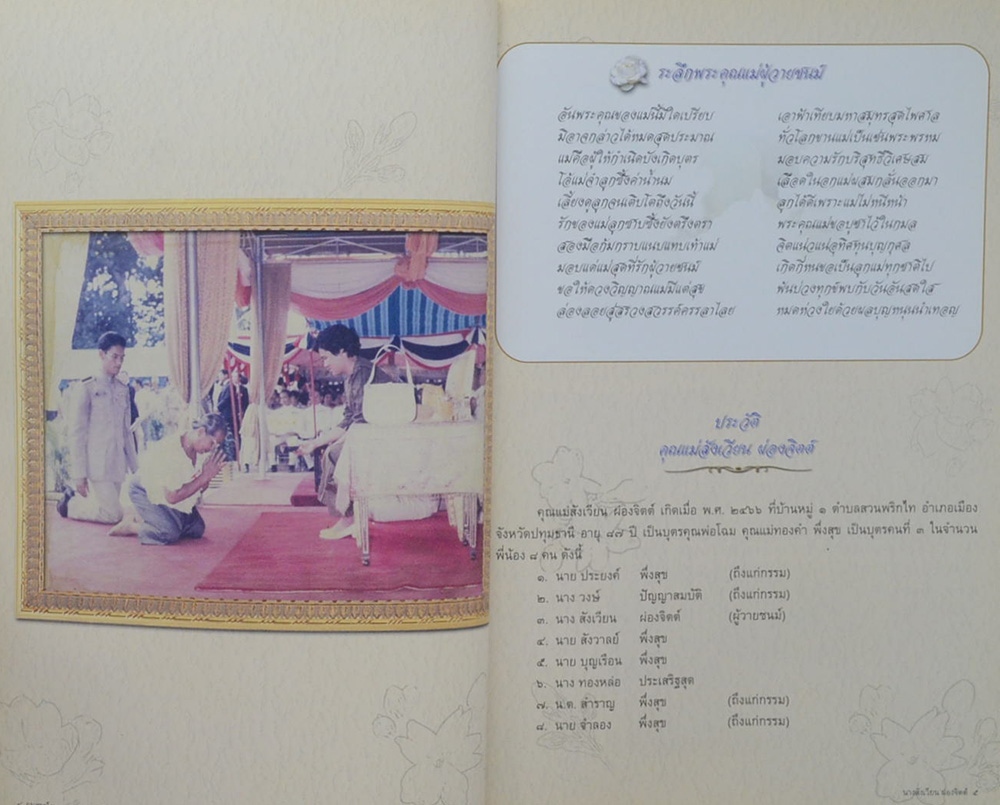 ระลึกพระคุณแม่ผู้วายชนม์
อันพระคุณของแม่นี้มิใดเปรียบ เอาฟ้าเทียบมหาสมุทรสุดไพศาล
มิอาจกล่าวได้หมดสุดประมาณ ทั่วโลกขานแม่เป็นเช่นพระพรหม
แม่คือผู้ให้กำเนิดบังเกิดบุตร มอบความรักบริสุทธิ์วิเศษสม
โอ้แม่จ๋าลูกซึ้งค่าน้ำนม เลือดในอกแม่ผสมกลั่นออกมา
เลี้ยงดูลูกจนเติบโตถึงวันนี้ ลูกได้ดีเพราะแม่ไม่หนีหน้า
รักของแม่ลูกซาบซึ้งยังตรึงตรา พระคุณแม่ขอบูชาไว้ในกมล
สองมือก้มกราบแนบแทบเท้าแม่ จิตแน่วแน่อุทิศหนุนบุญกุศล
มอบแด่แม่สุดที่รักผู้วายชนม์ เกิดกี่หนขอเป็นลูกแม่ทุกชาติไป
ขอให้ดวงวิญญาณแม่มีแต่สุข พ้นบ่วงทุกข์พบกับวันอันสดใส
ล่องลอยสู่สรวงสวรรค์ครรลาไลย หมดห่วงใยด้วยผลบุญหนุนนำเทอญ
ประวัติ
คุณแม่สังเวียน ผ่องจิตต์
คุณแม่สังเวียน ผ่องจิตต์ เกิดเมื่อ พ.ศ. ๒๔๖๖ ที่บ้านหมู่ ๑ ตำบลสวนพริกไท อำเภอเมือง
จังหวัดปทุมธานี อายุ ๘๗ ปี เป็นบุตรคุณพ่อโฉม คุณแม่ทองคำ พึ่งสุข เป็นบุตรคนที่ ๓ ในจำนวน
พี่น้อง ๘ คน ดังนี้
๑. นาย ประยงค์ พึ่งสุข (ถึงแก่กรรม)
๒. นาง วงษ์ ปัญญาสมบัติ (ถึงแก่กรรม)
๓. นาง สังเวียน ผ่องจิตต์ (ผู้วายชนม์)
๔. นาย สังวาลย์ พึ่งสุข
๕. นาย บุญเรือน พึ่งสุข
๖. นาง ทองหล่อ ประเสริฐสุด
๗. น.ต. สำราญ พึ่งสุข (ถึงแก่กรรม)
๘. นาย จำลอง พึ่งสุข (ถึงแก่กรรม)
นางสังเวียน ผ่องจิตต์ ๕